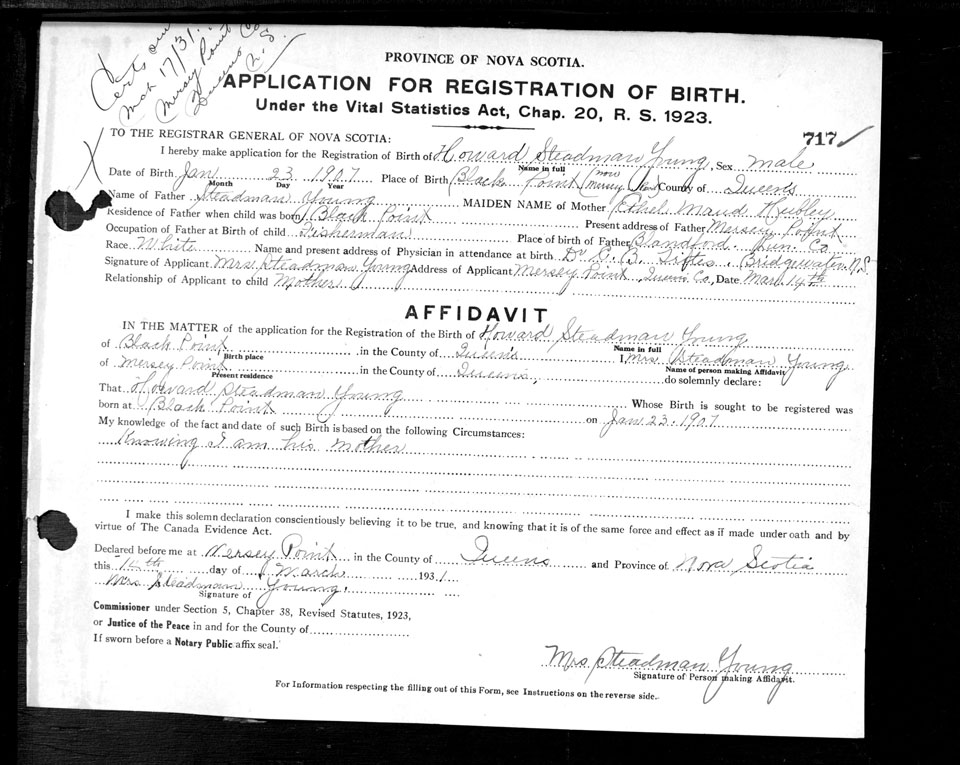 Certs om
Mch 17/31
Mersey Point
Queens Co
N.S.
PROVINCE OF NOVA SCOTIA.
APPLICATION FOR REGISTRATION OF BIRTH.
Under the Vital Statistics Act, Chap. 20, R. S. 1923.
717 ✓
X
TO THE REGISTRAR GENERAL OF NOVA SCOTIA:
I hereby make application for the Registration of Birth of Howard Steadman Young, Sex male
Name in full
Date of Birth Jan 23 1907 Place of Birth Black Point (now Mersey Point) County of Queens
Month Day Year
Name of Father Steadman Young MAIDEN NAME of Mother Ethel Maud Hubley
Residence of Father when child was born Black Point Present address of Father Mersey Point
Occupation of Father at Birth of child Fisherman Place of birth of Father Blandford Lun. Co.
Race White Name and present address of Physician in attendance at birth Dr C. B. Bridgewater N.S.
Signature of Applicant Mrs Steadman Young Address of Applicant Mersey Point, Queens Co, Date Mar 14th
Relationship of Applicant to child Mother
AFFIDAVIT
IN THE MATTER of the application for the Registration of the Birth of Howard Steadman Young
Name in full
of Black Point in the County of Queens I, Mrs Steadman Young
Birth place Name of person making Affidavit
of Mersey Point in the County of Queens, do solemnly declare:
Present residence
That Howard Steadman Young Whose Birth is sought to be registered was
born at Black Point on Jan 23. 1907
My knowledge of the fact and date of such Birth is based on the following Circumstances:
Knowing I am his mother
I make this solemn declaration conscientiously believing it to be true, and knowing that it is of the same force and effect as if made under oath and by
virtue of The Canada Evidence Act.
Declared before me at Mersey Point in the County of Queens and Province of Nova Scotia
this 14th day of March 1931
Mrs Steadman Young.
Signature of
Commissioner under Section 5, Chapter 38, Revised Statutes, 1923,
or Justice of the Peace in and for the County of
If sworn before a Notary Public affix seal.
Mrs Steadman Young
Signature of Person making Affidavit.
For Information respecting the filling out of this Form, see Instructions on the reverse side.